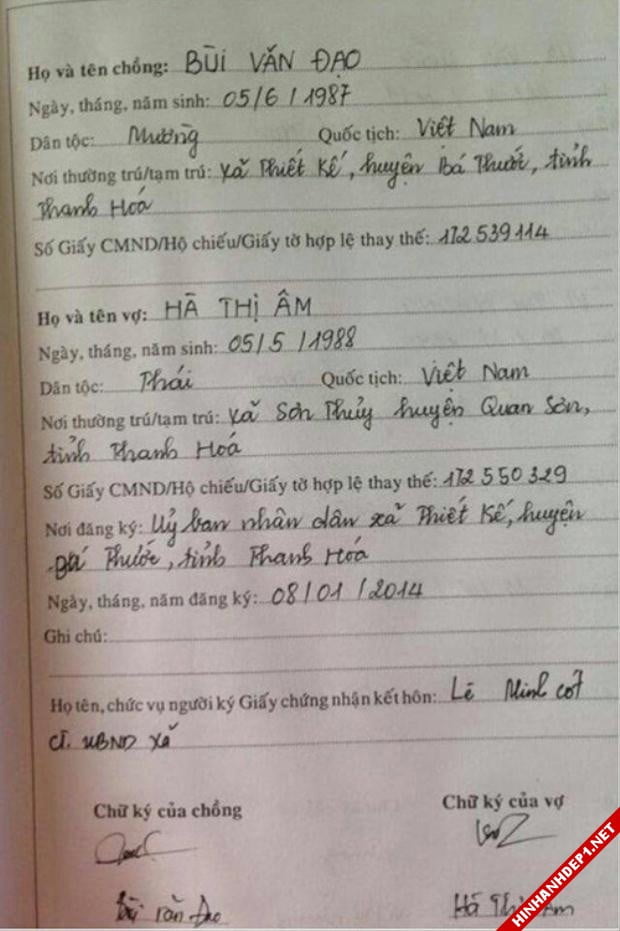 Họ và tên chồng: BÙI VĂN ĐẠO
Ngày, tháng, năm sinh: 05/6/1987
Dân tộc: Mường Quốc tịch: Việt Nam
Nơi thường trú/tạm trú: xã Thiết Kế, huyện Bá Thước, tỉnh
Thanh Hoá
Số Giấy CMND/Hộ chiếu/Giấy tờ hợp lệ thay thế: 172 539 114
Họ và tên vợ: HÀ THỊ ÂM
Ngày, tháng, năm sinh: 05/5/1988
Dân tộc: Thái Quốc tịch: Việt Nam
Nơi thường trú/tạm trú: xã Sơn Thủy huyện Quan Sơn,
tỉnh Thanh Hoá
Số Giấy CMND/Hộ chiếu/Giấy tờ hợp lệ thay thế: 172 550 329
Nơi đăng ký: Uỷ ban nhân dân xã Thiết Kế, huyện
Bá Thước, tỉnh Thanh Hoá
Ngày, tháng, năm đăng ký: 08/01/2014
Ghi chú:
Họ tên, chức vụ người ký Giấy chứng nhận kết hôn: Lê Minh cốt
CT. UBND xã
Chữ ký của chồng Chữ ký của vợ
Bùi Văn Đạo Hà Thị Âm
HINHANHDEP1.NET